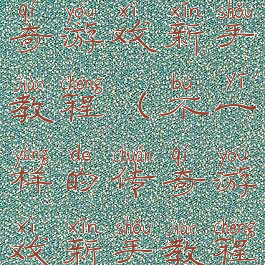 qí yóu xì xīn shǒu
奇游戏新手
jiàn chéng bù yī
教程（不一
yàng de chuán qí yóu
样的传奇游
xì xīn shǒu jiàn chéng
戏新手教程